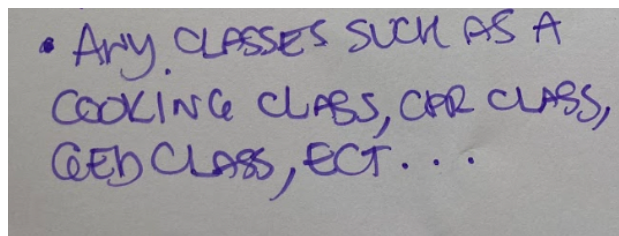 • Any CLASSES SUCH AS A
COOKING CLASS, CPR CLASS,
GED CLASS, ECT...